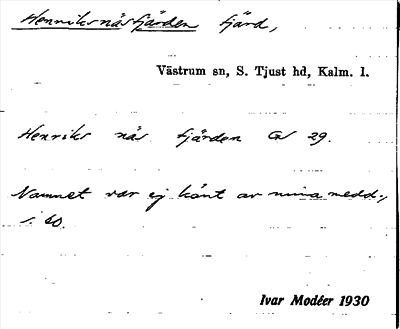 Henriksnäsfjärden fjärd,
Västrum sn, S. Tjust hd, Kalm. l.
Henriks näs fjärden GS 29.
Namnet var ej känt av mina medd.,
i 60.
Ivar Modéer 1930